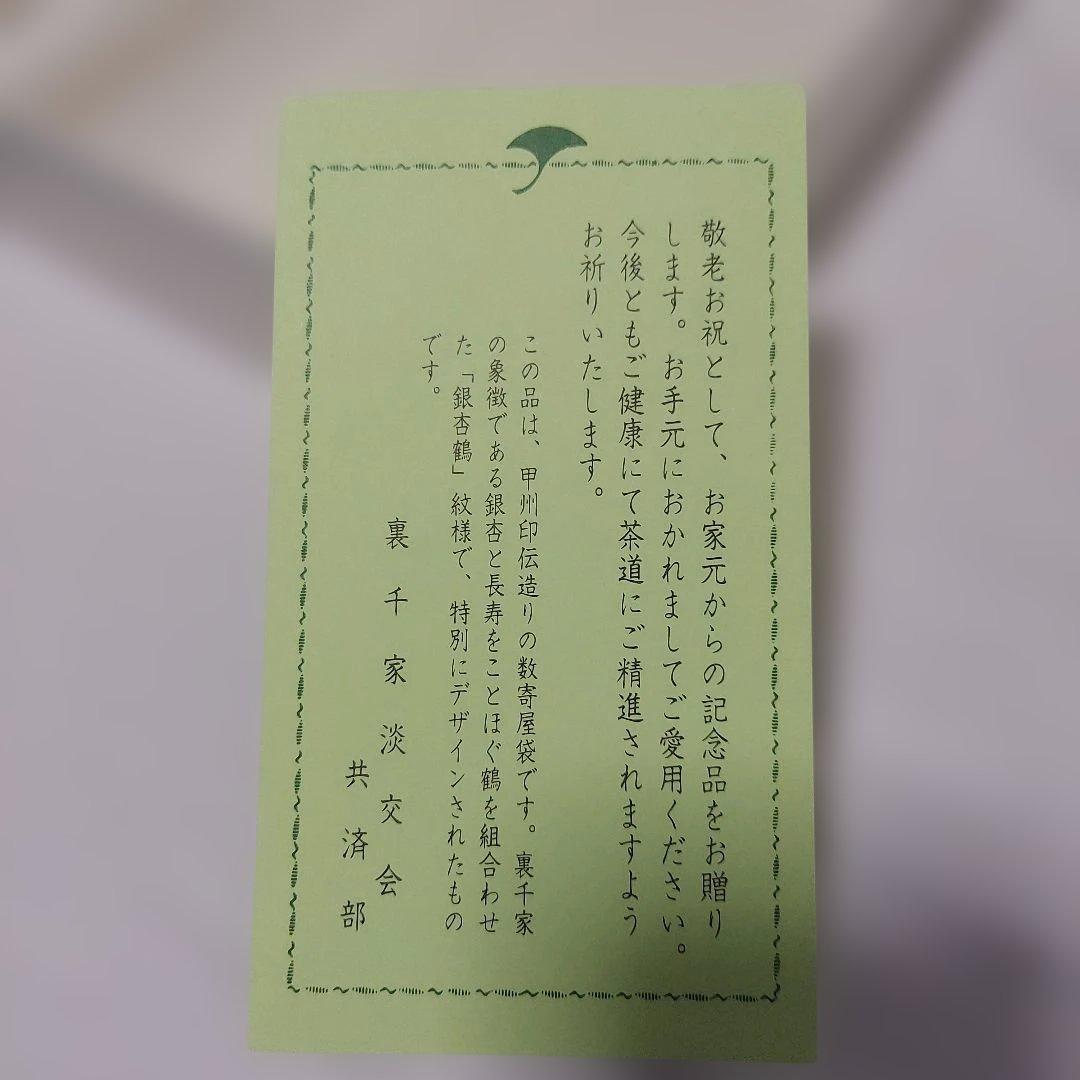 敬老お祝として、お家元からの記念品をお贈り
します。お手元におかれましてご愛用ください。
今後ともご健康にて茶道にご精進されますよう
お祈りいたします。
この品は、甲州印伝造りの数寄屋袋です。裏千家
の象徴である銀杏と長寿をことほぐ鶴を組合わせ
た「銀杏鶴」紋様で、特別にデザインされたもの
です。
裏千家淡交会
共済部